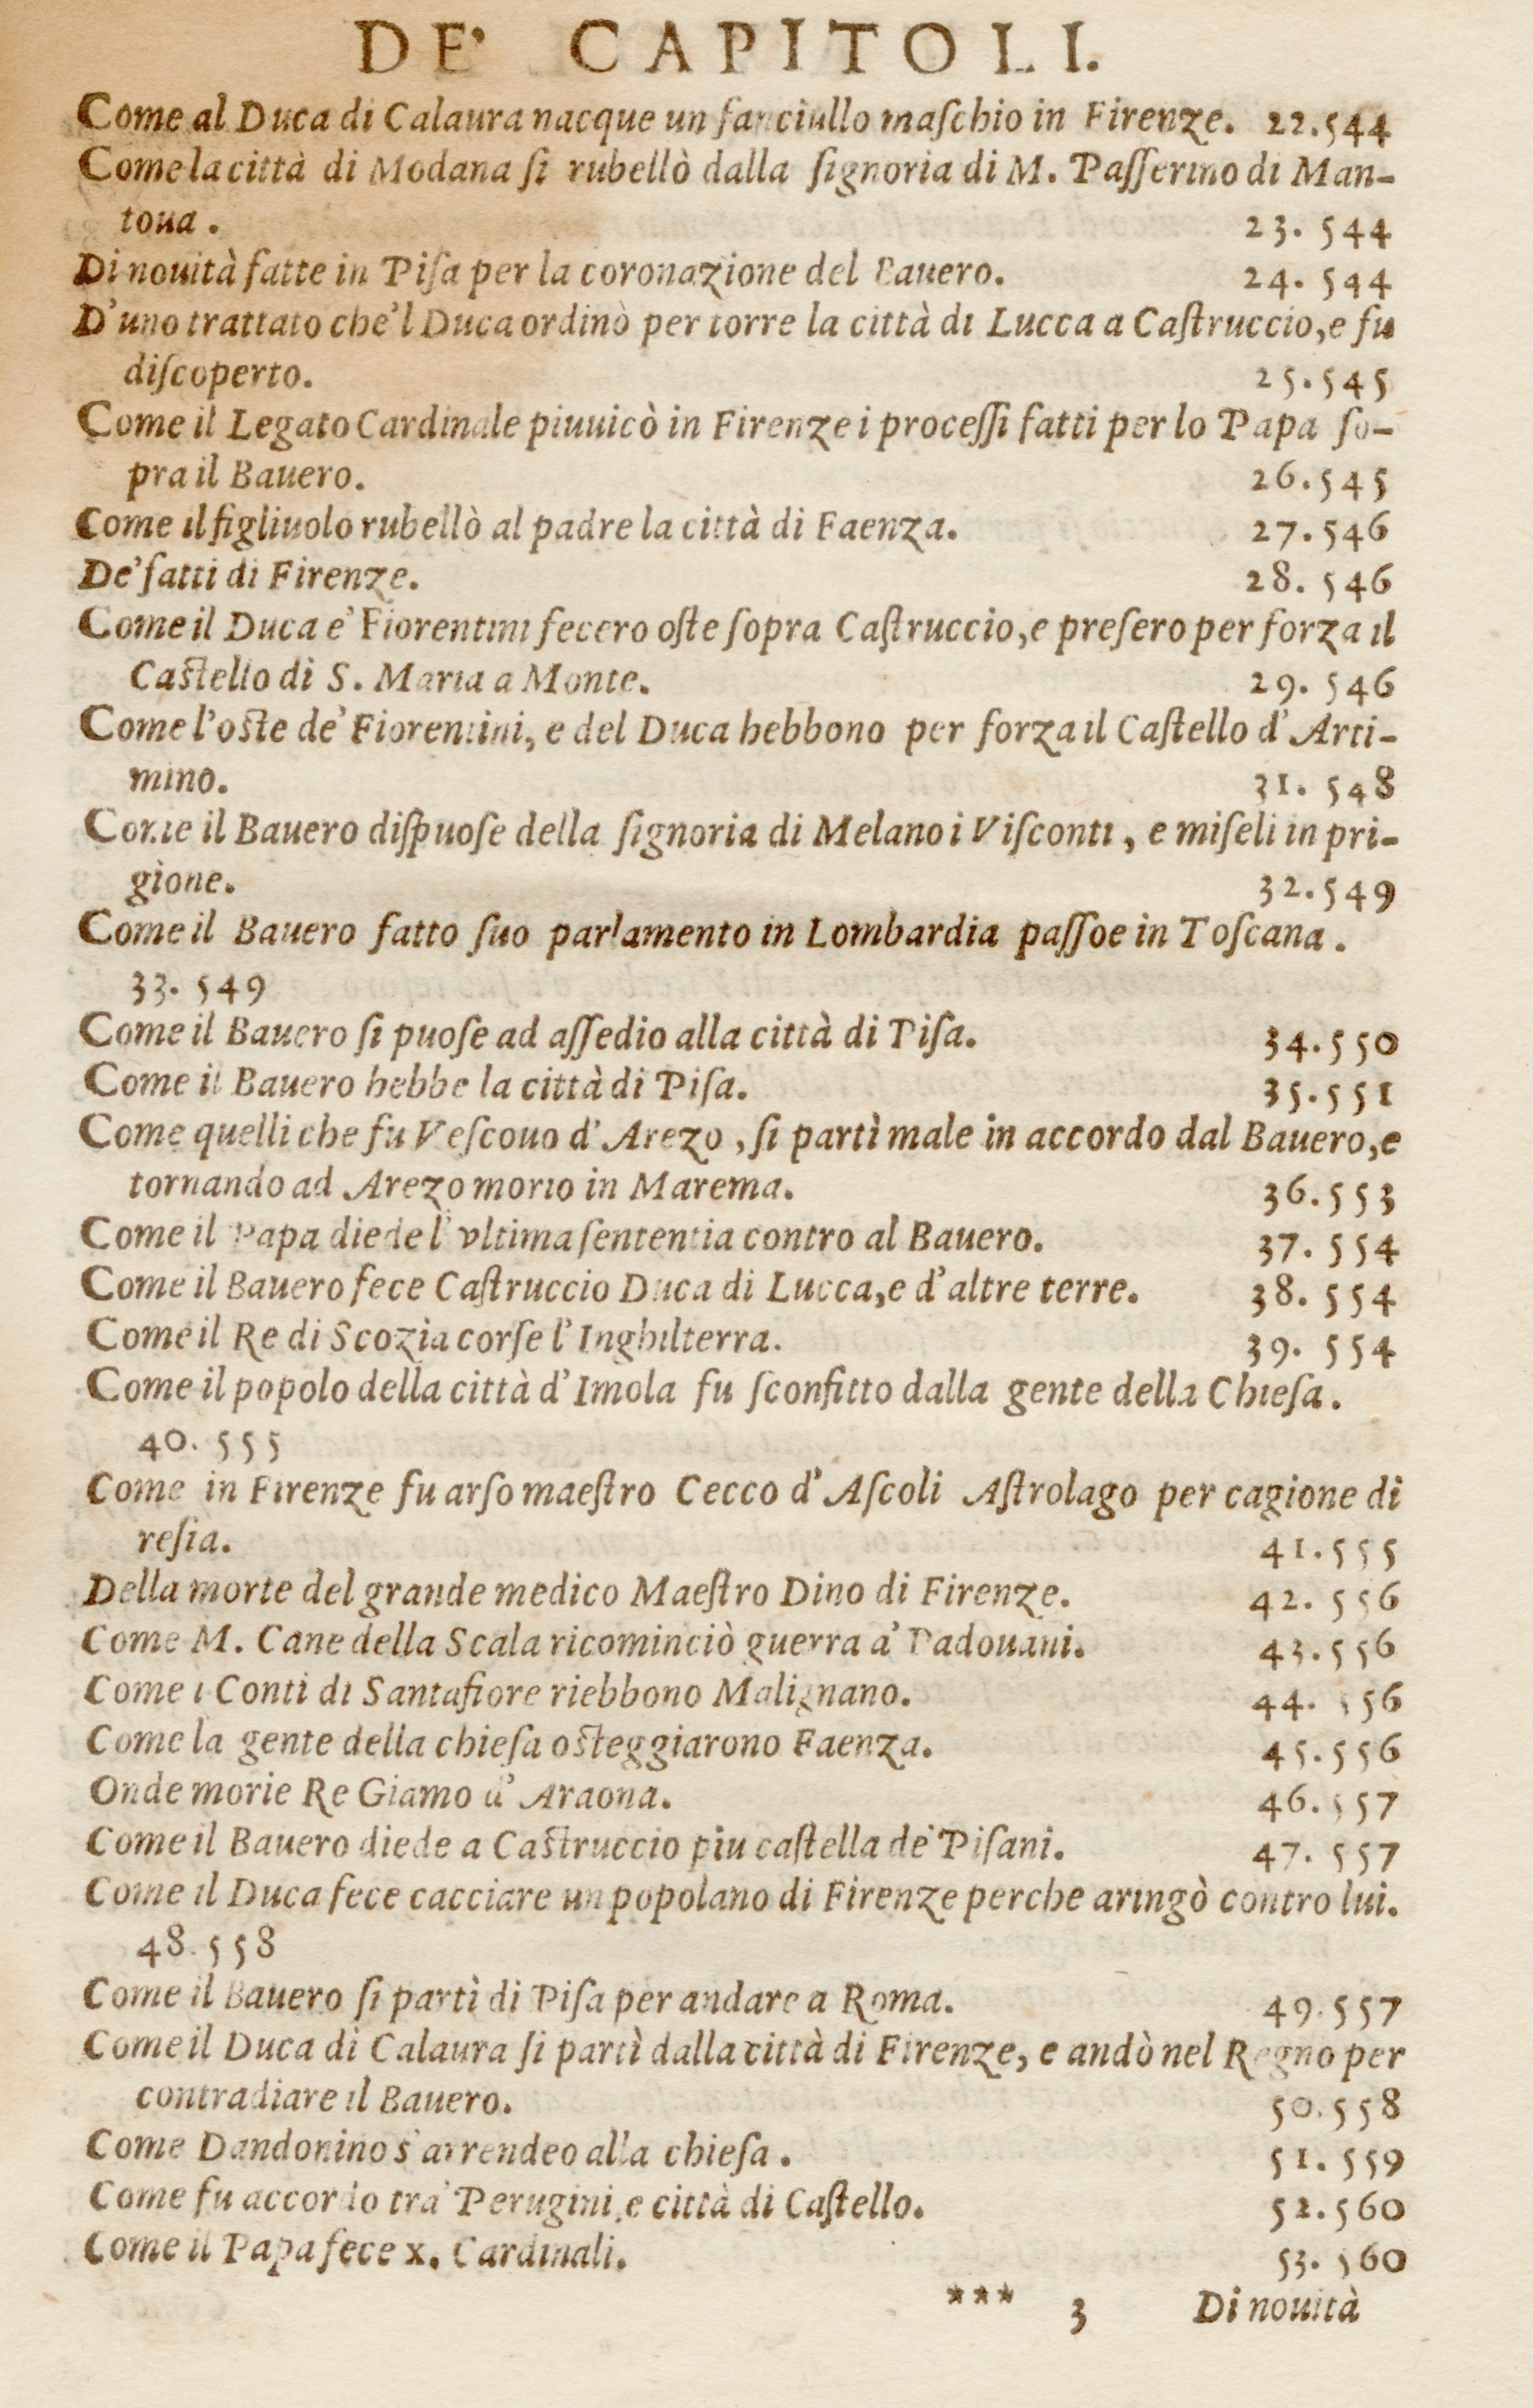 DE' CAPITOLI.
Come al Duca di Calaura nacque un fanciullo maſchio in Firenze. 22.544
Come la città di Modana ſi rubellò dalla ſignoria di M. Paſſerino di Man-
toua. 23. 544
Di nouità fatte in Piſa per la coronazione del Bauero. 24. 544
D'uno trattato che'l Duca ordinò per torre la città di Lucca a Caſtruccio, e fu
diſcoperto. 25.545
Come il Legato Cardinale piuuicò in Firenze i proceſſi fatti per lo Papa ſo-
pra il Bauero. 26.545
Come il figliuolo rubellò al padre la città di Faenza. 27.546
De' fatti di Firenze. 28. 546
Come il Duca e' Fiorentini fecero oſte ſopra Caſtruccio, e preſero per forza il
Caſtello di S. Maria a Monte. 29. 546
Come l'oſte de' Fiorentini, e del Duca hebbono per forza il Caſtello d'Arti-
mino. 31. 548
Come il Bauero diſpuoſe della ſignoria di Melano i Viſconti, e miſeli in pri-
gione. 32.549
Come il Bauero fatto ſuo parlamento in Lombardia paſſoe in Toſcana.
33. 549
Come il Bauero ſi puoſe ad aſſedio alla città di Piſa. 34.550
Come il Bauero hebbe la città di Piſa. 35.551
Come quelli che fu Veſcouo d'Arezo, ſi partì male in accordo dal Bauero, e
tornando ad Arezo morio in Marema. 36.553
Come il Papa diede l'vltima ſententia contro al Bauero. 37. 554
Come il Bauero fece Caſtruccio Duca di Lucca, e d'altre terre. 38. 554
Come il Re di Scozia corſe l'Inghilterra. 39. 554
Come il popolo della città d'Imola fu ſconfitto dalla gente della Chieſa.
40. 555
Come in Firenze fu arſo maeſtro Cecco d'Aſcoli Aſtrolago per cagione di
reſia. 41.555
Della morte del grande medico Maeſtro Dino di Firenze. 42. 556
Come M. Cane della Scala ricominciò guerra a' Padouani. 43.556
Come i Conti di Santafiore riebbono Malignano. 44. 556
Come la gente della chieſa oſteggiarono Faenza. 45.556
Onde morie Re Giamo d'Araona. 46.557
Come il Bauero diede a Caſtruccio piu caſtella de' Piſani. 47. 557
Come il Duca fece cacciare un popolano di Firenze perche aringò contro lui.
48.558
Come il Bauero ſi partì di Piſa per andare a Roma. 49.557
Come il Duca di Calaura ſi partì dalla città di Firenze, e andò nel Regno per
contradiare il Bauero. 50.558
Come Dandonino s'arrendeo alla chieſa. 51. 559
Come fu accordo tra' Perugini, e città di Caſtello. 52.560
Come il Papa fece x. Cardinali. 53. 560
*** 3 Di nouità